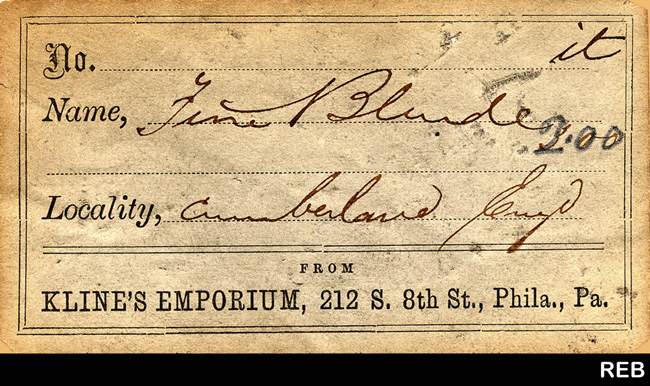 No. it
Name, Fine Blende
2.00
Locality, Cumberland Engd
FROM
KLINE'S EMPORIUM, 212 S. 8th St., Phila., Pa.
REB